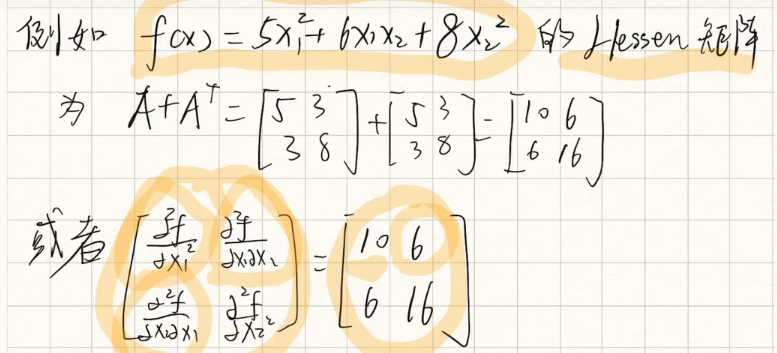 例如 f(x) = 5x₁² + 6x₁x₂ + 8x₂² 的 Hessen 矩阵
为 A+Aᵀ = [5 3; 3 8] + [5 3; 3 8] = [10 6; 6 16]
或者 [∂²f/∂x₁² ∂²f/∂x₁∂x₂; ∂²f/∂x₂∂x₁ ∂²f/∂x₂²] = [10 6; 6 16]